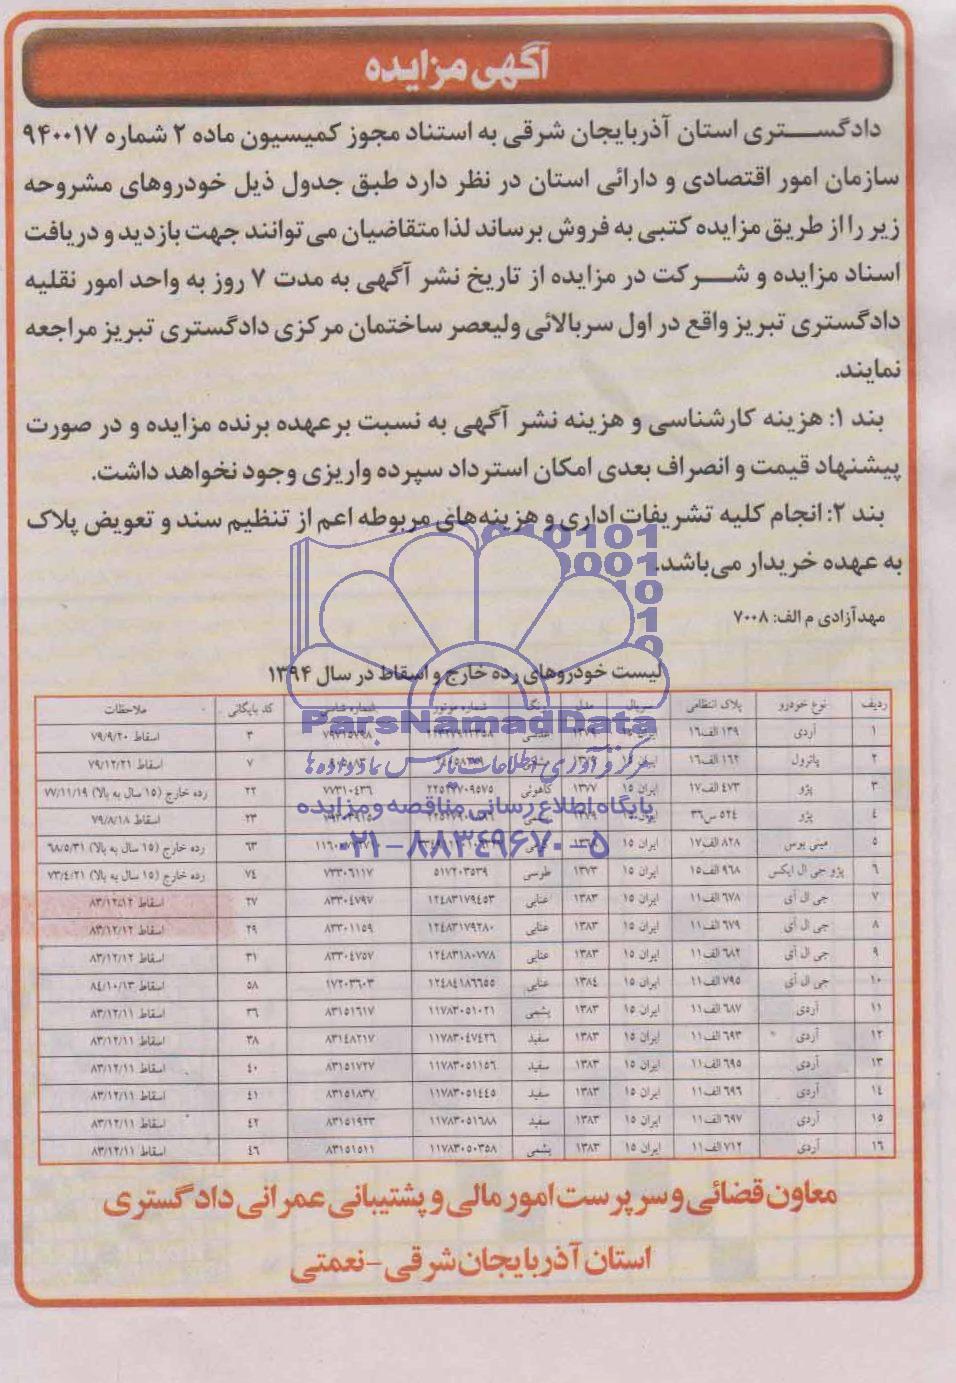 آگهی مزایده
دادگستری استان آذربایجان شرقی به استناد مجوز کمیسیون ماده ۲ شماره ۹۴۰۰۱۷
سازمان امور اقتصادی و دارائی استان در نظر دارد طبق جدول ذیل خودروهای مشروحه
زیر را از طریق مزایده کتبی به فروش برساند لذا متقاضیان می توانند جهت بازدید و دریافت
اسناد مزایده و شرکت در مزایده از تاریخ نشر آگهی به مدت ۷ روز به واحد امور نقلیه
دادگستری تبریز واقع در اول سربالائی ولیعصر ساختمان مرکزی دادگستری تبریز مراجعه
نمایند.
بند ۱: هزینه کارشناسی و هزینه نشر آگهی به نسبت برعهده برنده مزایده و در صورت
پیشنهاد قیمت و انصراف بعدی امکان استرداد سپرده واریزی وجود نخواهد داشت.
بند ۲: انجام کلیه تشریفات اداری و هزینه‌های مربوطه اعم از تنظیم سند و تعویض پلاک
به عهده خریدار می‌باشد.
مهدآزادی م الف: ۷۰۰۸
لیست خودروهای رده خارج و اسقاط در سال ۱۳۹۴
ردیف نوع خودرو پلاک انتظامی سریال مدل رنگ شماره موتور شماره شاسی کد بایگانی ملاحظات
۱ آردی ۱۳۹ الف ۱۶ ایران ۱۵ ۱۳۷۹ ۳ اسقاط ۷۹/۹/۲۰
۲ پاترول ۱۶۲ الف ۱۶ ۷ اسقاط ۷۹/۱۲/۲۱
۳ پژو ۴۷۳ الف ۱۷ ایران ۱۵ ۱۳۷۷ کاهوئی ۲۲۵۲۷۰۹۵۷۵ ۷۷۳۱۰۴۳۶ ۲۲ رده خارج (۱۵ سال به بالا) ۷۷/۱۱/۱۹
۴ پژو ۵۲۴ س ۳۶ ۲۳ اسقاط ۷۹/۸/۱۸
۵ مینی بوس ۸۲۸ الف ۱۷ ایران ۱۵ ۶۳ رده خارج (۱۵ سال به بالا) ۶۸/۵/۳۱
۶ پژو جی ال ایکس ۹۶۸ الف ۱۵ ایران ۱۵ ۱۳۷۳ طوسی ۵۱۷۲۰۳۵۳۹ ۷۳۳۰۶۱۱۷ ۷۴ رده خارج (۱۵ سال به بالا) ۷۳/۴/۲۱
۷ جی ال آی ۶۷۸ الف ۱۱ ایران ۱۵ ۱۳۸۳ عنابی ۱۲۴۸۳۱۷۹۴۵۳ ۸۳۳۰۴۷۹۷ ۲۷ اسقاط ۸۳/۱۲/۱۲
۸ جی ال آی ۶۷۹ الف ۱۱ ایران ۱۵ ۱۳۸۳ عنابی ۱۲۴۸۳۱۷۹۲۸۰ ۸۳۳۰۱۱۵۹ ۲۹ اسقاط ۸۳/۱۲/۱۲
۹ جی ال آی ۶۸۲ الف ۱۱ ایران ۱۵ ۱۳۸۳ عنابی ۱۲۴۸۳۱۸۰۷۷۸ ۸۳۳۰۴۷۵۷ ۳۱ اسقاط ۸۳/۱۲/۱۲
۱۰ جی ال آی ۷۹۵ الف ۱۱ ایران ۱۵ ۱۳۸۴ عنابی ۱۲۴۸۴۱۸۶۶۵۵ ۱۷۲۰۳۶۰۳ ۵۸ اسقاط ۸۴/۱۰/۱۳
۱۱ آردی ۶۸۷ الف ۱۱ ایران ۱۵ ۱۳۸۳ یشمی ۱۱۷۸۳۰۵۱۰۲۱ ۸۳۱۵۱۶۱۷ ۳۶ اسقاط ۸۳/۱۲/۱۱
۱۲ آردی ۶۹۳ الف ۱۱ ایران ۱۵ ۱۳۸۳ سفید ۱۱۷۸۳۰۴۷۴۲۶ ۸۳۱۴۸۲۱۷ ۳۸ اسقاط ۸۳/۱۲/۱۱
۱۳ آردی ۶۹۵ الف ۱۱ ایران ۱۵ ۱۳۸۳ سفید ۱۱۷۸۳۰۵۱۱۵۶ ۸۳۱۵۱۷۲۷ ۴۰ اسقاط ۸۳/۱۲/۱۱
۱۴ آردی ۶۹۶ الف ۱۱ ایران ۱۵ ۱۳۸۳ سفید ۱۱۷۸۳۰۵۱۴۴۵ ۸۳۱۵۱۸۳۷ ۴۱ اسقاط ۸۳/۱۲/۱۱
۱۵ آردی ۶۹۷ الف ۱۱ ایران ۱۵ ۱۳۸۳ سفید ۱۱۷۸۳۰۵۱۶۸۸ ۸۳۱۵۱۹۲۳ ۴۲ اسقاط ۸۳/۱۲/۱۱
۱۶ آردی ۷۱۲ الف ۱۱ ایران ۱۵ ۱۳۸۳ یشمی ۱۱۷۸۳۰۵۰۳۵۸ ۸۳۱۵۱۵۱۱ ۴۶ اسقاط ۸۳/۱۲/۱۱
ParsNamadData
مرکز فرآوری اطلاعات پارس نماد داده ها
پایگاه اطلاع رسانی مناقصه و مزایده
۰۲۱-۸۸۳۴۹۶۷۰-۵
معاون قضائی و سرپرست امور مالی و پشتیبانی عمرانی دادگستری
استان آذربایجان شرقی - نعمتی